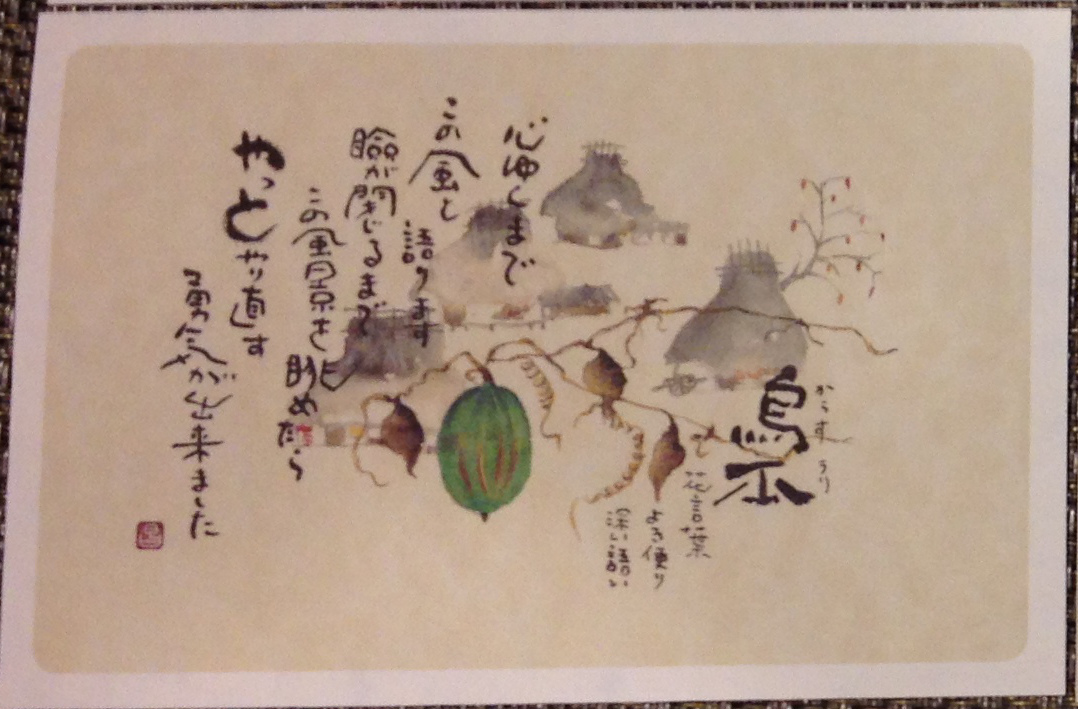 からす うり
烏瓜
花言葉
よき便り
深い
心ゆくまで
この風と 語ります
瞼が閉じるまで
この風景を眺めたら
やっとやり直す
勇気が出来ました